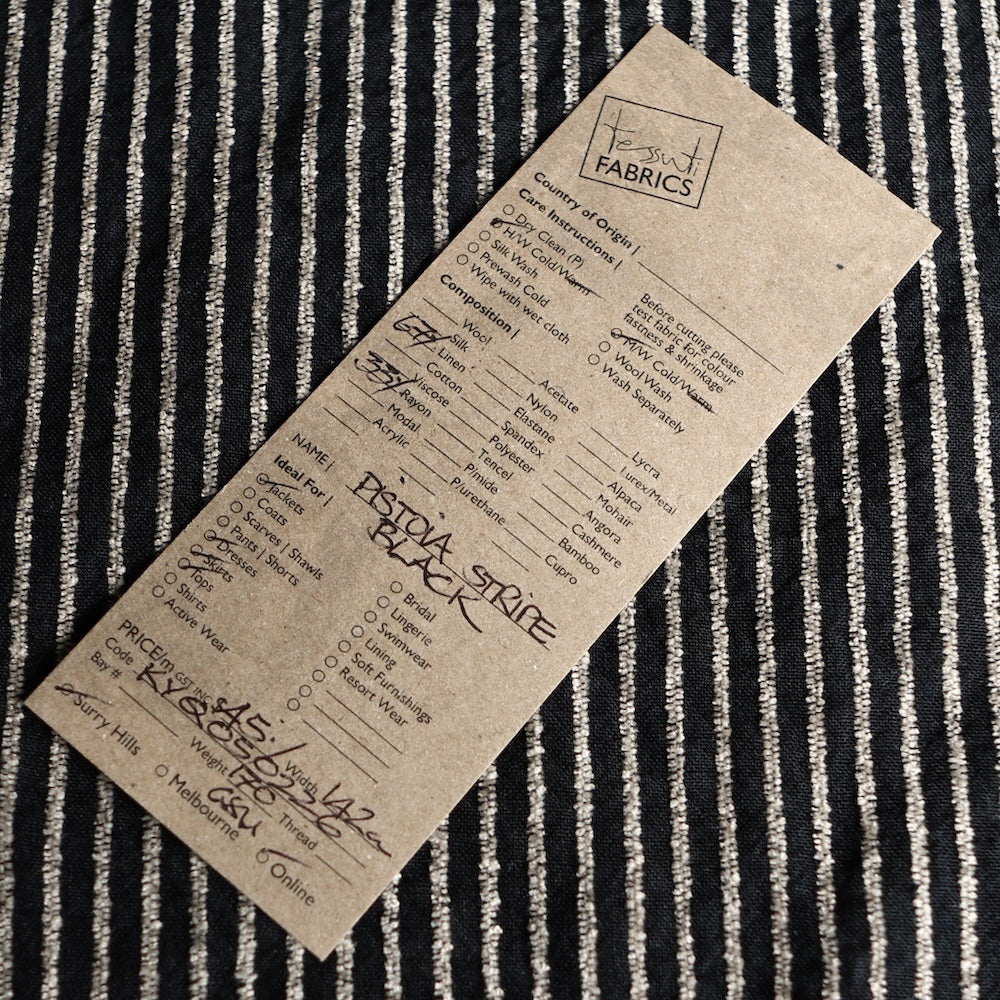 tessuti
FABRICS
Country of Origin |
Care Instructions |
Dry Clean (P)
H/W Cold/Warm
Silk Wash
Prewash Cold
Wipe with wet cloth
Before cutting please
test fabric for colour
fastness & shrinkage
M/W Cold/Warm
Wool Wash
Wash Separately
Composition |
Wool
Silk
67% Linen
Cotton
33% Viscose
Rayon
Modal
Acrylic
Acetate
Nylon
Elastane
Spandex
Polyester
Tencel
P/mide
P/urethane
Lycra
Lurex/Metal
Alpaca
Mohair
Angora
Cashmere
Bamboo
Cupro
NAME |
PISTOIA STRIPE
BLACK
Ideal For |
Jackets
Coats
Scarves | Shawls
Pants | Shorts
Dresses
Skirts
Tops
Shirts
Active Wear
Bridal
Lingerie
Swimwear
Lining
Soft Furnishings
Resort Wear
PRICE/m GST INC 45.
Width 142cm
Code KYQ050226
Bay #
Weight 170 GSM
Thread
Surry Hills
Melbourne
Online